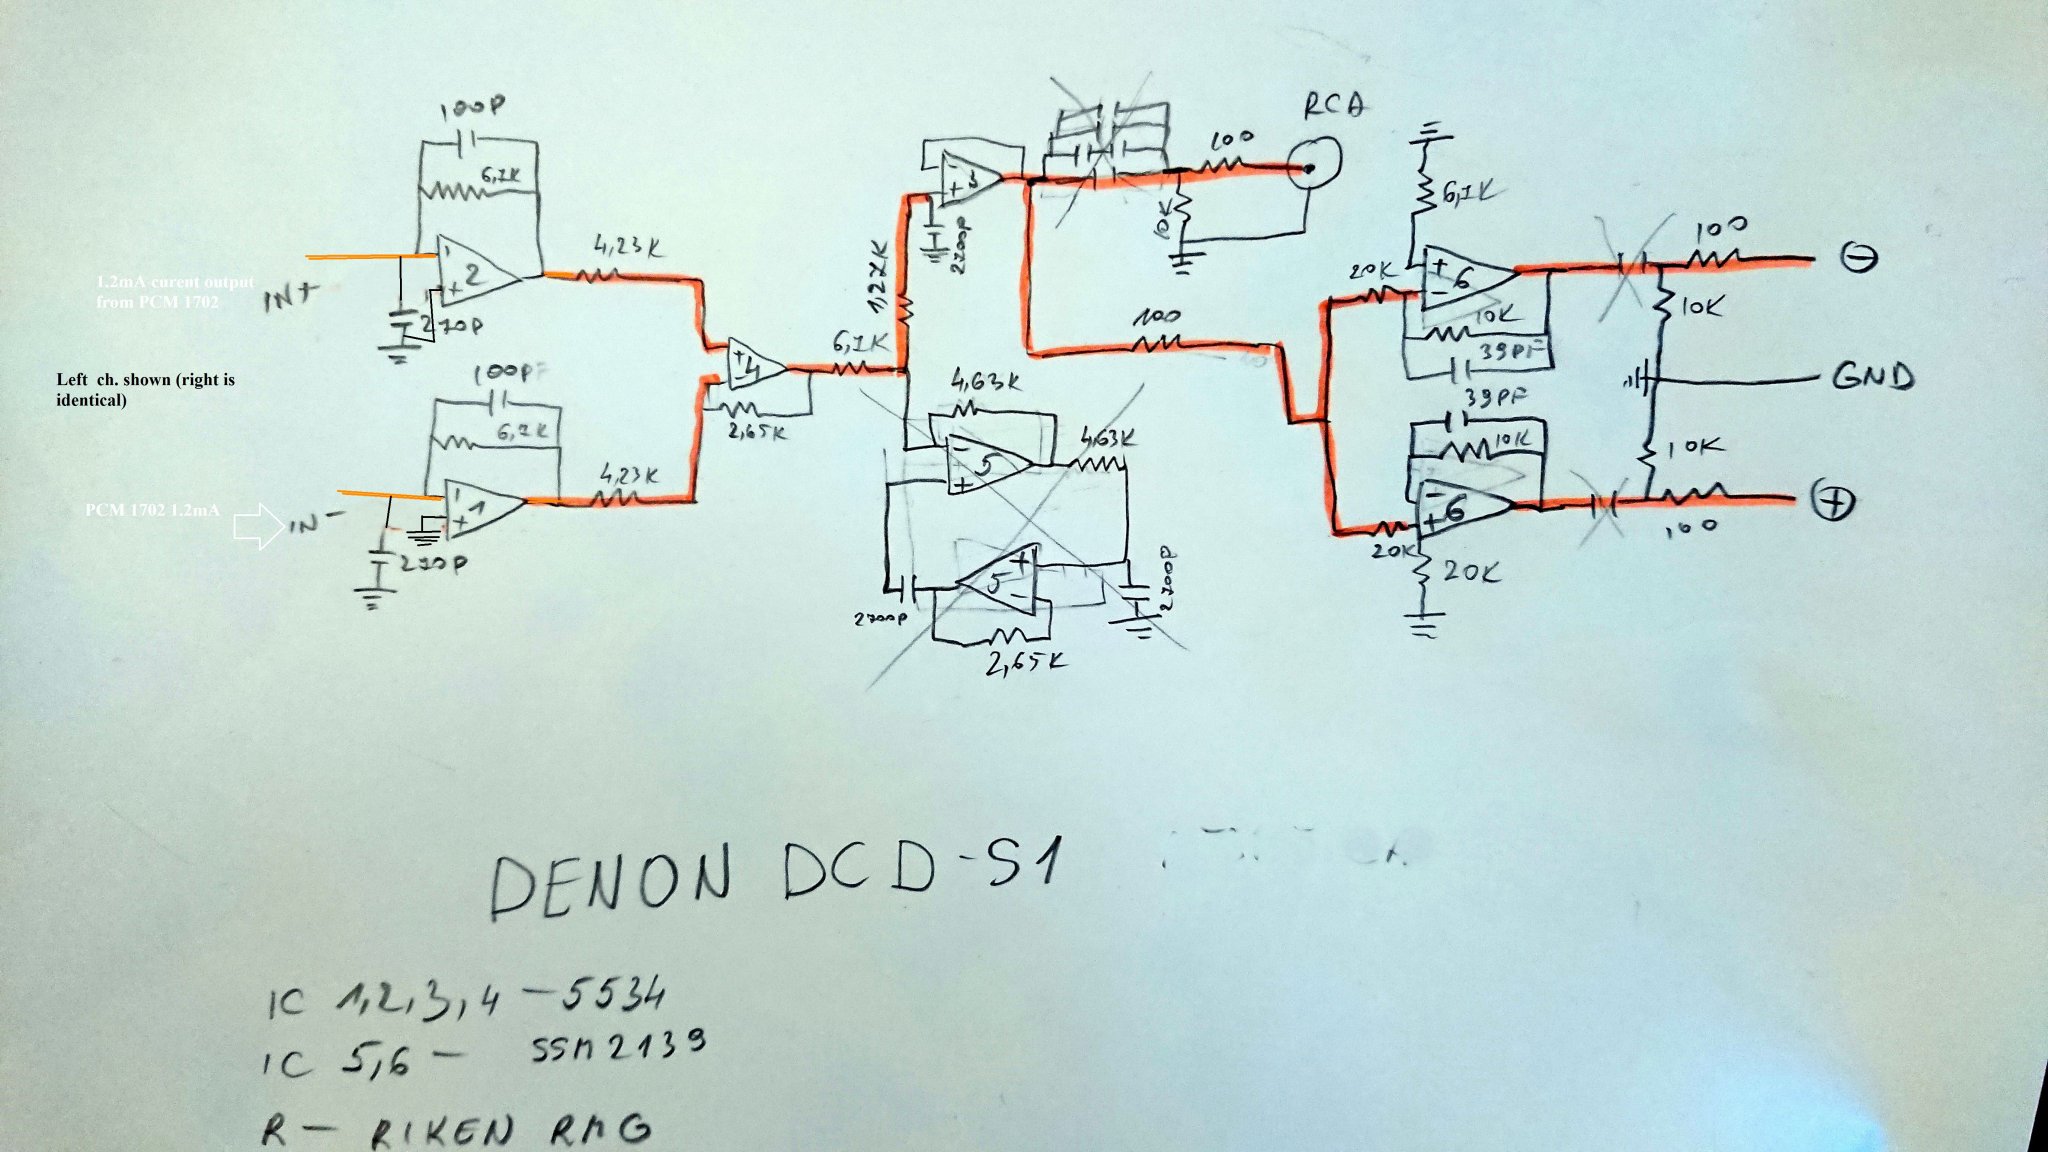 100P
6,1K
1.2mA curent output
from PCM 1702
IN+
2
270P
4,23K
Left ch. shown (right is
identical)
100PF
6,2K
PCM 1702 1.2mA
IN-
1
270P
4,23K
4
2,65K
6,1K
1,27K
3
2700P
4,63K
5
4,63K
5
2700P
2700P
2,65K
100
RCA
10K
100
6,1K
20K
6
10K
39PF
100
10K
GND
39PF
10K
10K
6
20K
20K
100
DENON DCD-S1
IC 1,2,3,4 - 5534
IC 5,6 - SSM2139
R - RIKEN RMG